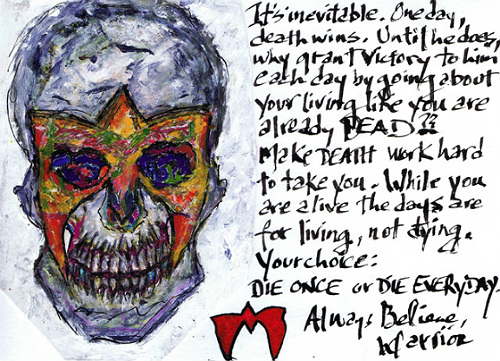 It's inevitable. One day,
death wins. Until he does,
why grant victory to him
each day by going about
your living like you are
already DEAD??
Make DEATH work hard
to take you. While you
are alive the days are
for living, not dying.
Your choice:
DIE ONCE or DIE EVERYDAY.
Always Believe,
Warrior